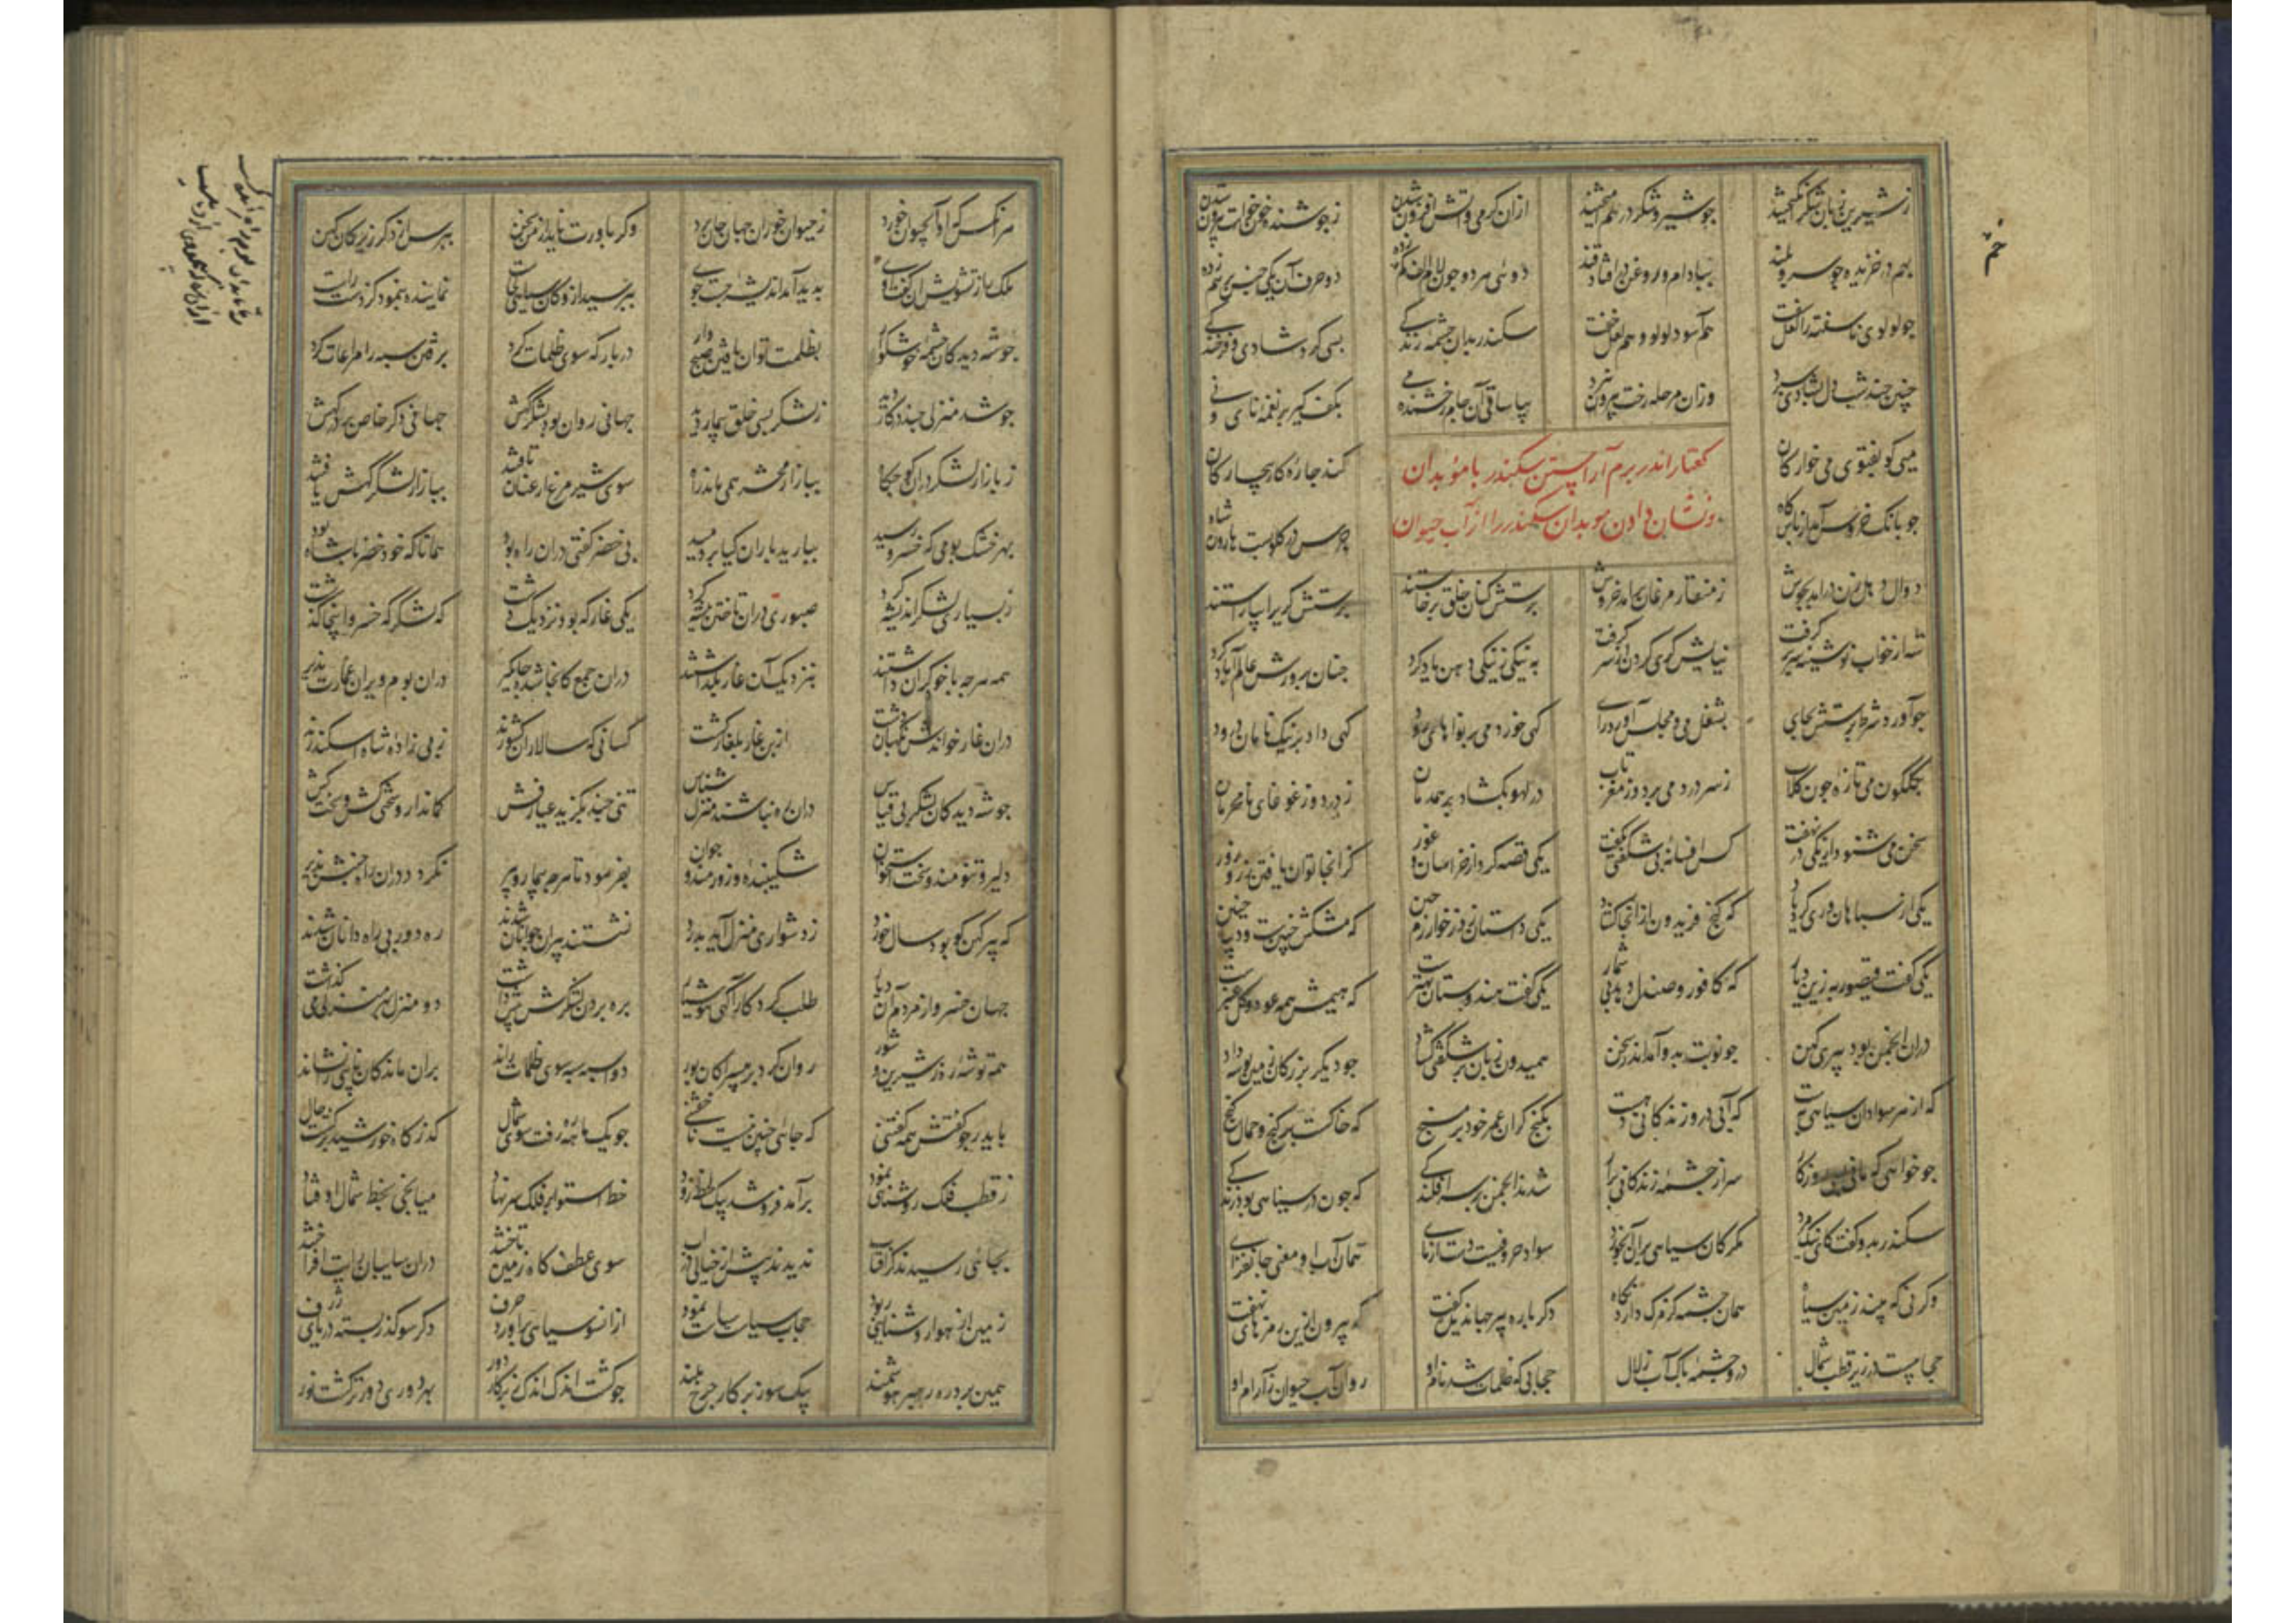 ز شیرین زبان شکر انگیختند جو شیر و شکر درهم آمیختند ازان کرمی و آتش افزون شدن ز جوشنده خون خواست بیرون شدن
بهم در خزیده جو سرو بلند ببادام و روغن در افتاد قند دوئی هر دو جون لام الف خم زده دو حرف آن یکی جنس بر هم زده
جو لولوی ناسفته را لعل سفت هم آسود لولو و هم لعل خفت سکندر بدان چشمه زندکی بسی کرد شادی و فرخندکی
چنین چند شب دل بشادی سپرد وزان مرحله رخت بیرون نبرد بیا ساقی آن جام رخشنده می بکف کیر بر نغمه نای و نی
میی کو بفتوی می خوارکان کند جاره کار بیچارکان
کفتار اندر بزم آراستن سکندر با موبدان
و نشان دادن موبدان سکندر را از آب حیوان
جو بانک خروس آمد از پاس کاه جرس در کلو بست هارون شاه
دوال دهل زن درامد بجوش ز منقار مرغان برامد خروش پرستش کنان خلق برخاستند پرستش کری را بیاراستند
شه از خواب نوشینه سر بر کرفت نیایش کری کردن از سر کرفت به نیکی ز نیکی دهن یاد کرد جنان پرورش عالم آباد کرد
جو آورد شرط پرستش بجای بشغل می و مجلس آورد رای کهی خورد می با نواهای رود کهی داد بر نیک نامان درود
بکلکون می تازه جون کلاب ز سر درد می برد و از مغز تاب در لهو بکشاد بر همدمان ز در دور غوغای نامحرمان
سخن می شنود از یکی در نهفت کس افسانه بی شکفتی نکفت یکی قصه کرد از خراسان و غور کز انجا توان یافتن زر و زور
یکی از سپاهان و ری کرد یاد که کنج فریدون ازانجا کشاد یکی داستان زد ز خوارزم و جین که مشکش چنینست و دیبا چنین
یکی کفت قیصور به زین دیار که کافور و صندل دهد بی شمار یکی کفت هندوستان بهترست که هیمش همه عود و کل عنبرست
دران انجمن بود پیری کهن جو نوبت بدو آمد اندر سخن همیدون زبان بر شکفتی کشاد جو دیکر بزرکان زمین بوسه داد
که از هر سوادان سیاهی بهست که آبی درو زندکانی دهست بکنج کران عمر خود بر مسنج که خاکست پر کنج و حمال کنج
جو خواهی که مانی بسی روزکار سر از جشمه زندکانی برآر شدند انجمن سر افکندکی که جون در سیاهی بود زندکی
سکندر بدو کفت کای نیک مرد مکر کان سیاهی بران آب خورد سواد حروفیست دست آزمای همان آب او معنی جانفزای
وکر نی که جند زمین سیاه همان جشمه کز مرک دارد نکاه دکرباره پیر جهاندیده کفت که بیرون ازین رمزهای نهفت
حجابیست در زیر قطب شمال درو جشمه پاک از آب زلال حجابی که ظلمات شد نام او روان آب حیوان ز آرام او
هر انکس کزان آب حیوان خورد ز حیوان خوران جهان جان برد وکر باورت ناید از من سخن بپرس از دکر زیرکان کهن
ملک را ز تشویش آن کفت و کوی بدید آمد اندیشه جست جوی بپرسید ازو کان سیاهی کجاست نماینده بنمود کز دست راست
جو شه دید کان جشمه خوشکوار بظلمت توان یافتن صبح وار در بارکه سوی ظلمات کرد
جو شد منزلی جند دید ز لشکر بسی خلق بیمار دید جهانی روان بود بر لشکرش جهانی دکر خاص بر درکهش
ز بازار لشکر دران کوچکاه ببازار محشر همی ماند راه سوی شیر مرغ ار عنان تافتند ببازار لشکر کهش یافتند
بهر خشک بومی که خسرو رسید ببارید باران کیا بر دمید پی خضر کفتی دران راه بود همانا که خود خضر با شاه بود
ز بسیاری لشکر اندیشه کرد صبوری دران تاختن پیشه کرد یکی غار که بود نزدیک دشت که لشکر که خسرو انجا کذشت
همه هرجه با خود کران داشتند بنزدیک آن غار بکذاشتند دران جمع کانجا شده جایکیر دران بوم ویران عمارت پذیر
ازین غار بلغار کشت کسانی که سالاران کشورند رهی زاده شاه اسکندرند
جو شه دید کان لشکر بی قیاس دران ره نباشند منزل شناس تنی چند بکزید عیار فش کماندار و سختی کش و سخت کش
دلیر و تنومند و سخت استخوان شکیبنده و زورمند و جوان بفرمود تا هر جه بیمار و پیر نکردد دران راه جنبش پذیر
که پیر کهن کو بود سال خورد ز دشواری منزل آید بدرد نشستند پیران جوانان شدند ره دور بی راه دانان شدند
جهان خسرو از مردم آن دیار طلب کرد کارآکهی هوشیار بره بردن لشکرش پیش داشت دو منزل بهر منزلی می کذاشت
همه توشه ره ز شیرین و شور روان کرد بر بیسراکان بور دو اسپه سپه سوی ظلمات راند بران ماندکان نایبی را نشاند
بهر جو کفتش همه کفتنی که جائی جنین نیست ناخفتنی جو یک ماهه ره رفت سوی شمال کذرکاه خورشید بر کشت حال
ز قطب فلک روشنائی نمود برآمد فرو شد بیک لحظه زود خط استوا بر فلک سر نهاد میانجی بخط شمال اوفتاد
بجائی رسیدند کز آفتاب ندیدند پیش از خیالی در آب سوی عطف کاه زمین تاختند دران سایبان رایت افراختند
زمین از هوا روشنائی ربود حجاب سیاست سیاهی نمود از انسو سیاهی براورد حرف دکر سو کذر بسته دریای ژرف
همین برد ره رهبر هوشمند بیک سو ز پرکار جرخ بلند جو کشت اندک اندک ز پرکار دور بهر دوری دورتر کشت نور